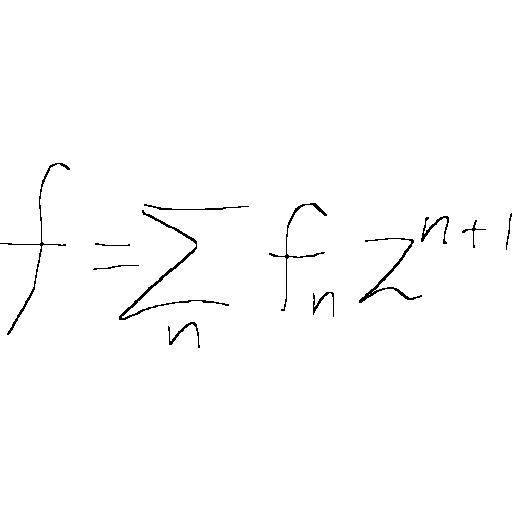 f = \sum_{n} f_{n} z^{n+1}